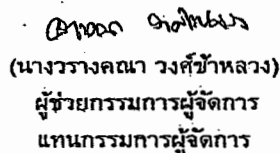 (นางวรางคณา วงศ์ข้าหลวง)
ผู้ช่วยกรรมการผู้จัดการ
แทนกรรมการผู้จัดการ